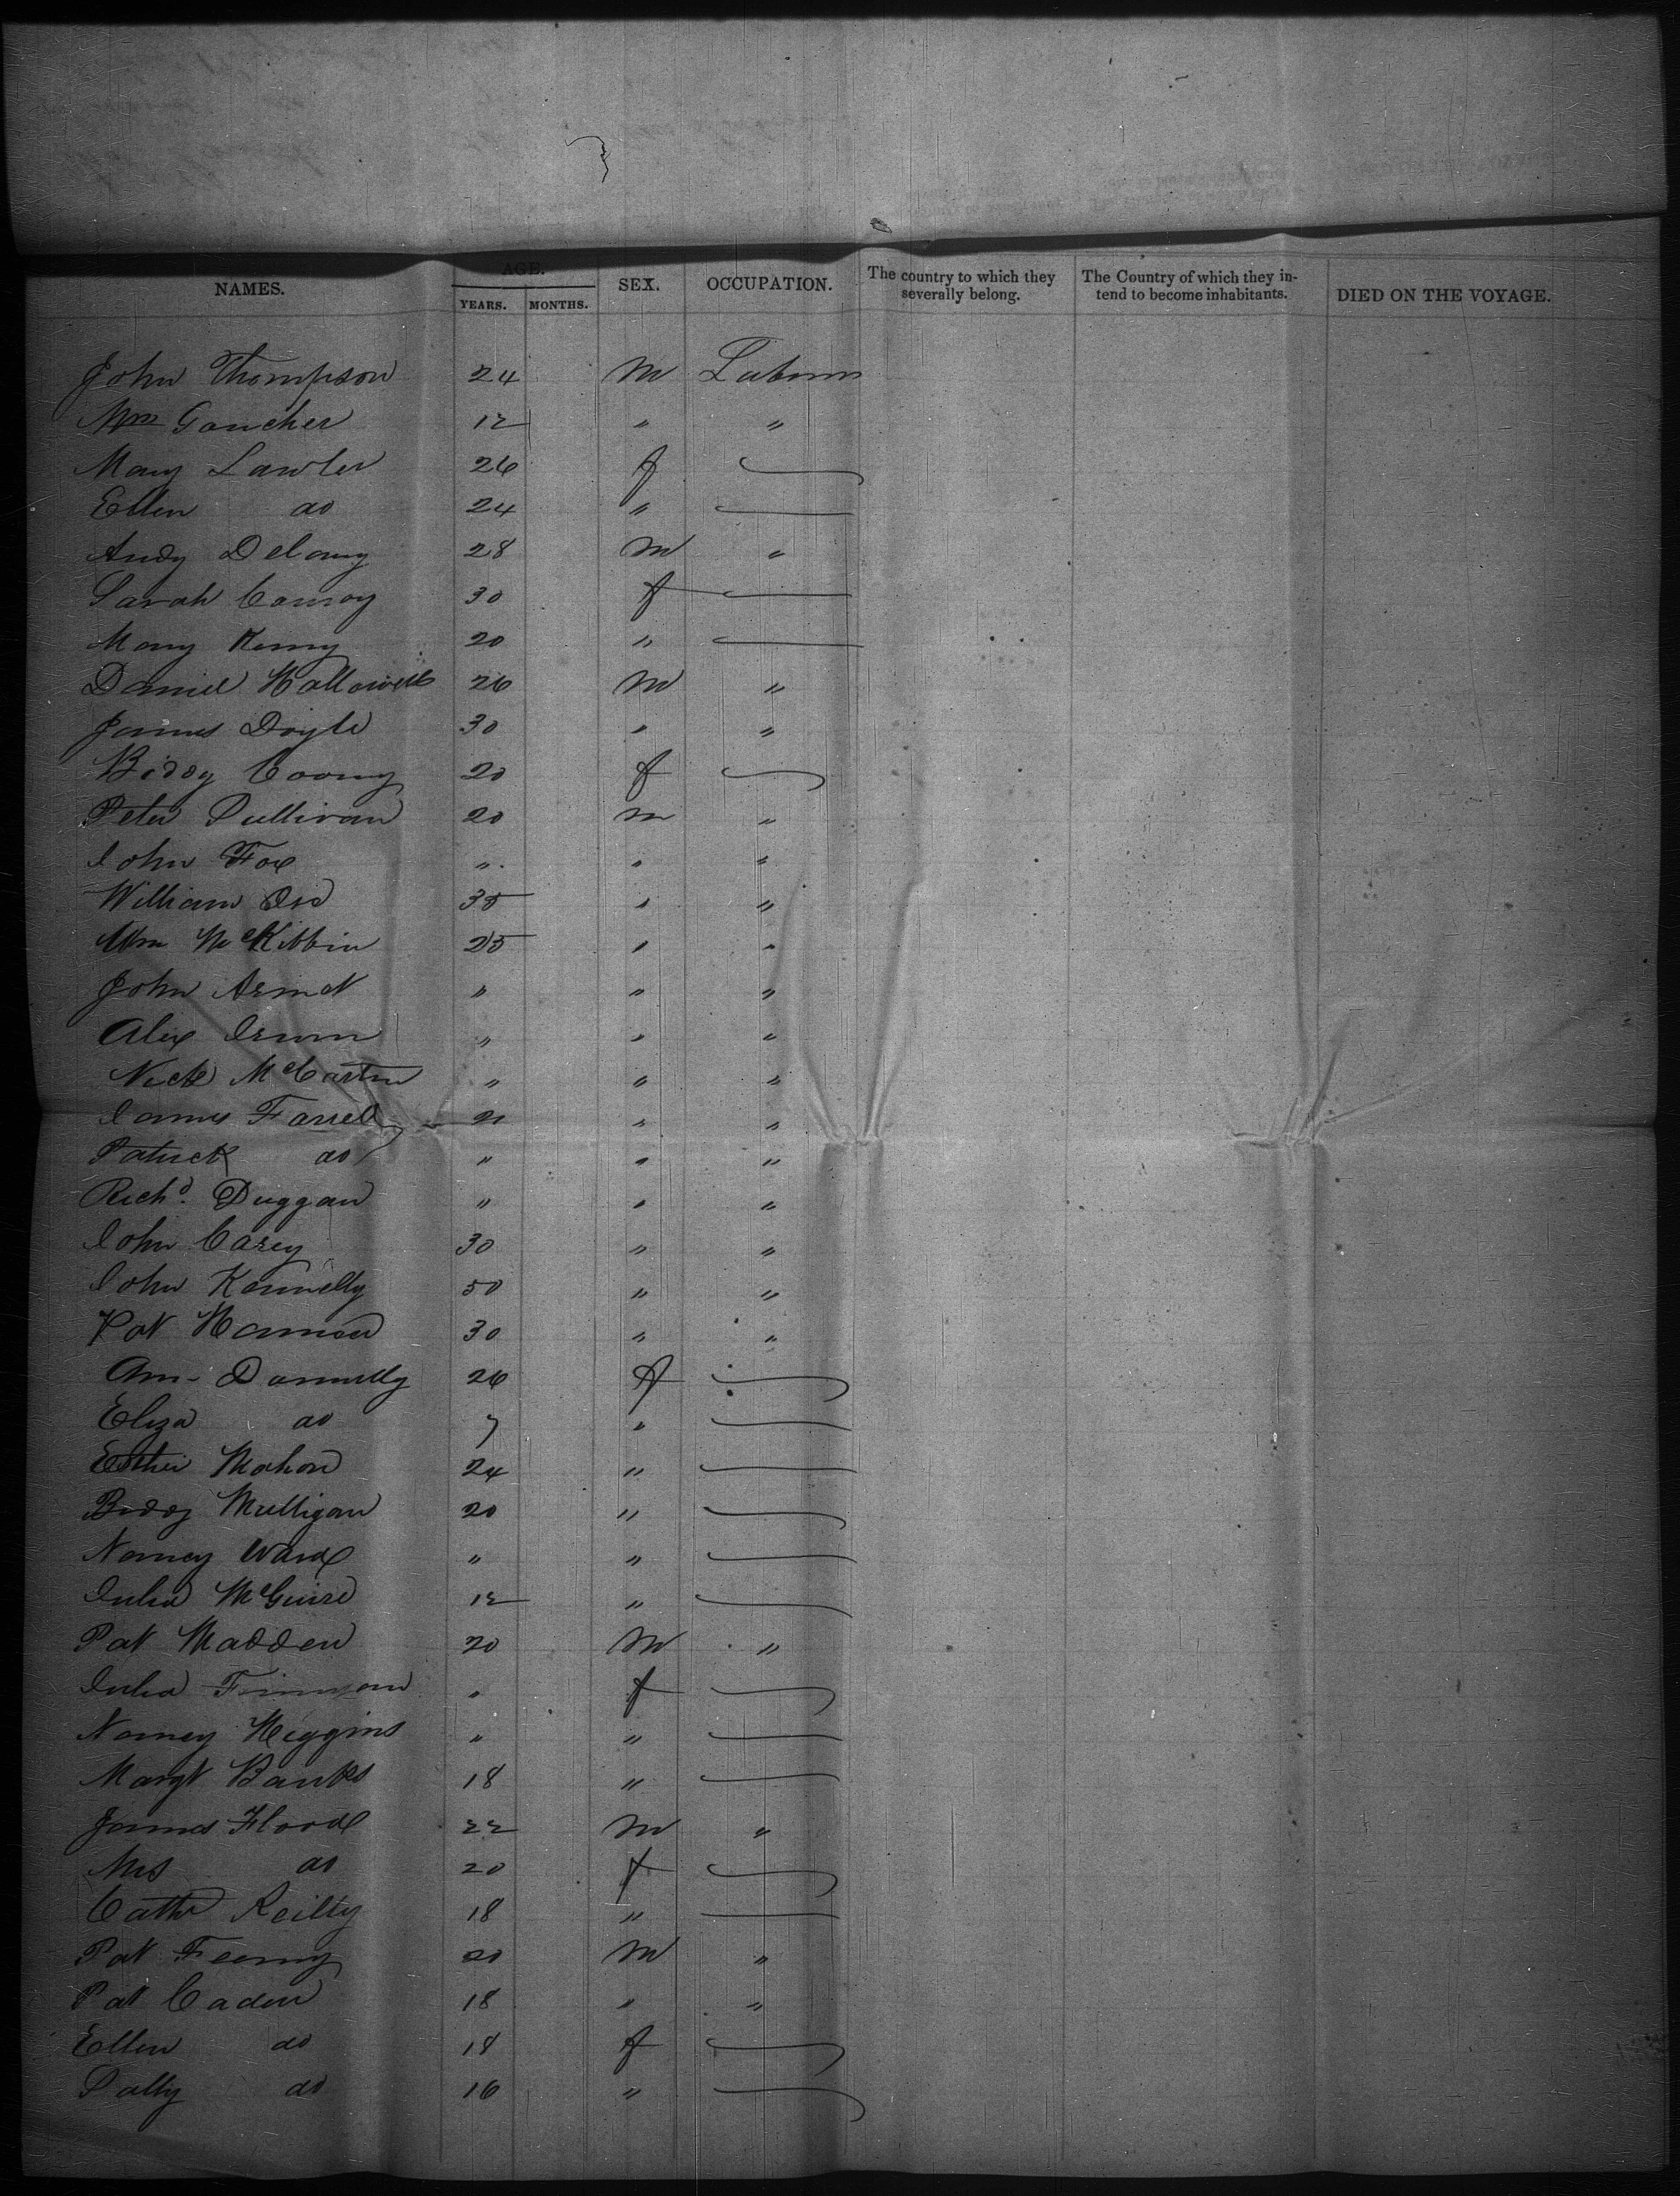 NAMES. AGE. YEARS. MONTHS. SEX. OCCUPATION. The country to which they severally belong. The Country of which they intend to become inhabitants. DIED ON THE VOYAGE.
John Thompson 24 M
Wm Goucher 12 " "
Mary Lawler 26 f
Ellen do 24 "
Andy Delany 28 M "
Sarah Conroy 30 f
Mary Kenny 20 "
Daniel Hallowell 26 M "
James Doyle 30 " "
Biddy Coony 20 f
Peter Sullivan 20 m "
John Fox " " "
William 35 " "
Wm McKibbin 25 " "
John " " "
Alex Irwin " " "
Nick McCartin " " "
James Farrell " " "
Patrick do " " "
Richd. Duggan " " "
John Carey 30 " "
John Kennelly 50 " "
Pat 30 " "
Ann Donnelly 26 f
Eliza do 7 "
Esther Mahon 24 "
Biddy Mulligan 20 "
Nancy Ward " "
Julia McGuire 12 "
Pat Madden 20 M "
Julia " f
Nancy Higgins " "
Margt Banks 18 "
James Flood 22 M "
Mrs do 20 f
Cathe Reilly 18 "
Pat Feeny 20 M "
Pat Caden 18 " "
Ellen do 18 f
Sally do 16 "